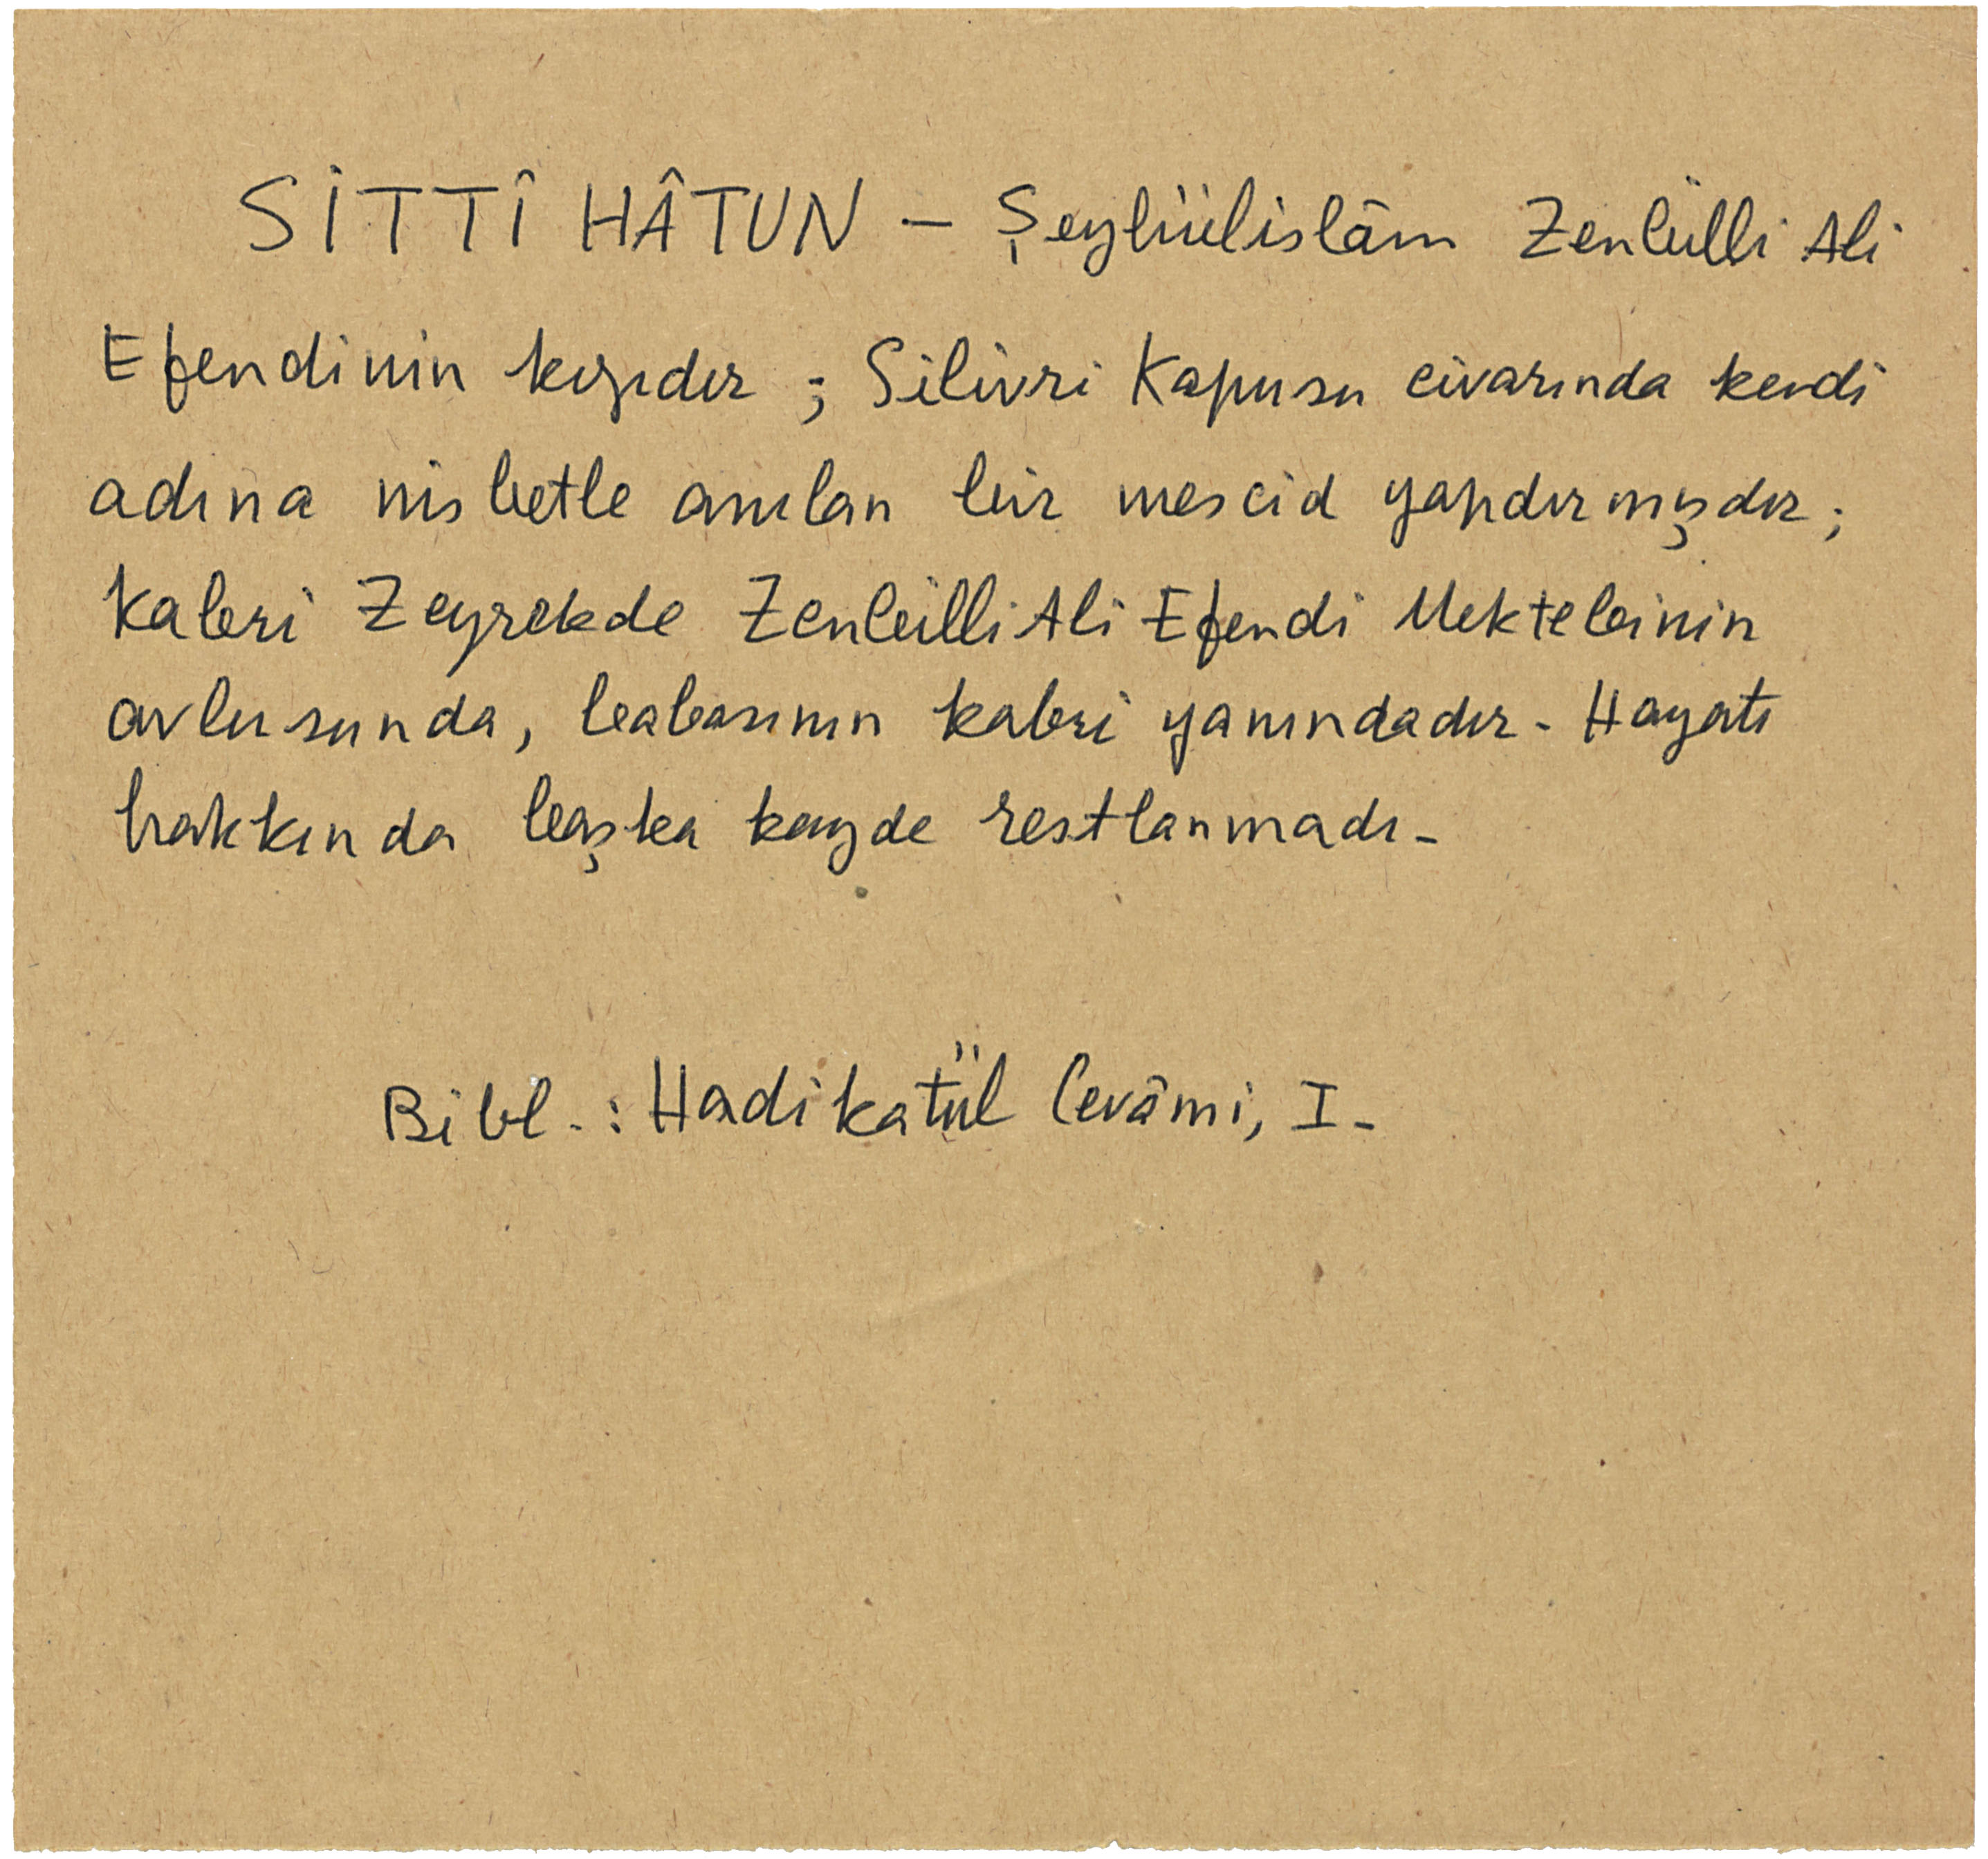 SİTTÎ HÂTUN — Şeyhülislâm Zenbilli Ali
Efendinin kızıdır ; Silivri Kapusu civarında kendi
adına nisbetle anılan bir mescid yapdırmışdır ;
kabri Zeyrekde Zenbilli Ali Efendi Mektebinin
avlusunda, babasının kabri yanındadır. Hayatı
hakkında başka kayde rastlanmadı.
Bibl. : Hadikatül Cevâmi, I.